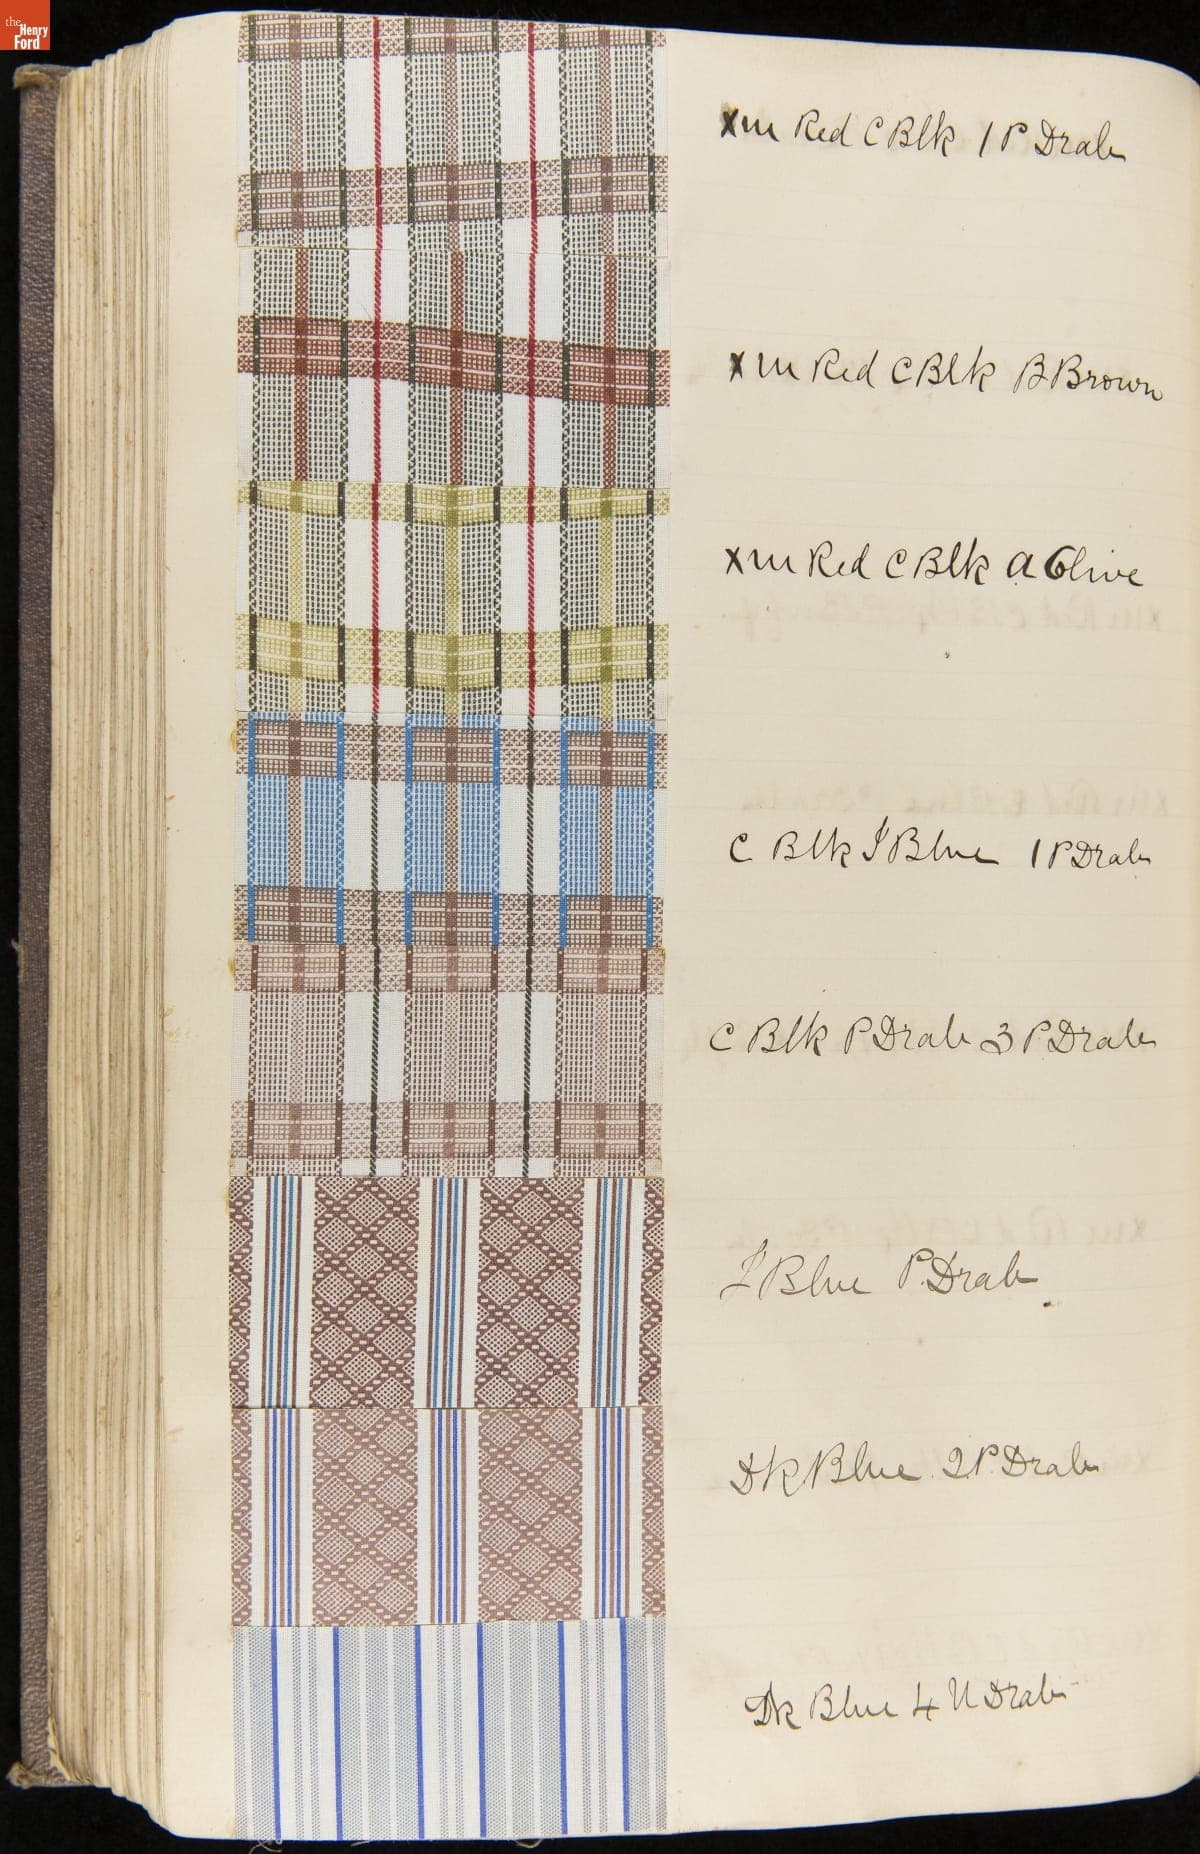 the Henry Ford
xm Red C Blk 1 P Drab
xm Red C Blk B Brown
xm Red C Blk A Olive
C Blk J Blue 1 P Drab
C Blk P Drab 3 P Drab
J Blue P. Drab
Dk Blue 2 P. Drab
Dk Blue 4 U Drab